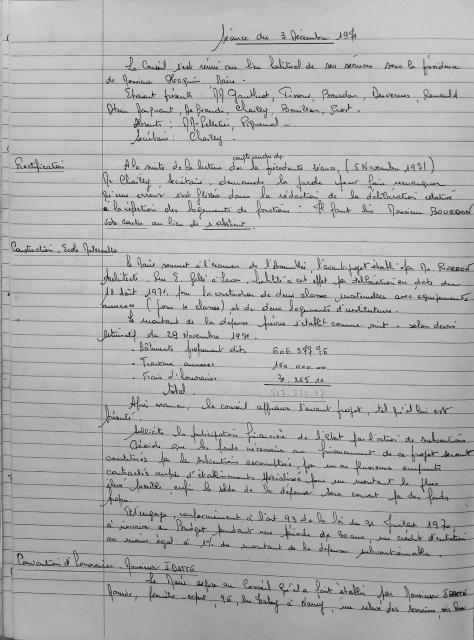 Séance du 3 Décembre 1971
Le Conseil s'est réuni au lieu habituel de ses séances sous la présidence
de Monsieur Maire.
Etaient présents : MM Gauthrot, Tissou, Bourdon, Renauld
Chailly, Bouillon,
Absents : MM. Pelletier,
Secrétaire : Chailly.
Rectification
A la suite de la lecture du compte rendu de la précédente séance, (5 Novembre 1971)
Mr Chailly Secrétaire, demande la parole pour faire remarquer
qu'une erreur s'est glissée dans la rédaction de la délibération relative
à la réfection des logements de fonctions : Il faut lire Monsieur BOURDON
vote contre au lieu de s'abstient.
Construction Ecole Maternelle
Le Maire soumet à l'examen de l'Assemblée l'avant-projet établi par Mr
Architecte, habilité à cet effet par délibération en date du
11 Août 1971, pour la construction de deux classes maternelles avec équipements
annexes (pour 4 classes) et de deux logements d'instituteurs.
Le montant de la dépense prévue s'établit comme suit - selon devis
estimatif du 29 Novembre 1971.
- Bâtiments proprement dits 606.377.96
- Travaux annexes 150.000.00
- Frais d'honoraires 31.255.11
Total
Après examen, le conseil approuve l'avant projet, tel qu'il lui est
présenté.
Sollicite la participation financière de l'état par l'octroi de subvention
Décide que les fonds nécessaires au financement de ce projet seront
constitués par la subvention escomptée, par un ou plusieurs emprunts
contractés auprès d'établissements spécialisés pour un montant le plus
élevé possible, enfin le solde de la dépense sera couvert par des fonds
propres.
S'engage, conformément à l'art 93 de la loi du 31 Juillet 1970,
à inscrire au Budget, pendant une période de 30 ans, un crédit d'entretien
au moins égal à 1% du montant de la dépense subventionnable.
Convention d'honoraires - Monsieur IDATTE
Le Maire expose au Conseil qu'il a fait établir par Monsieur IDATTE
expert, 96, à Nancy, un relevé des terrains